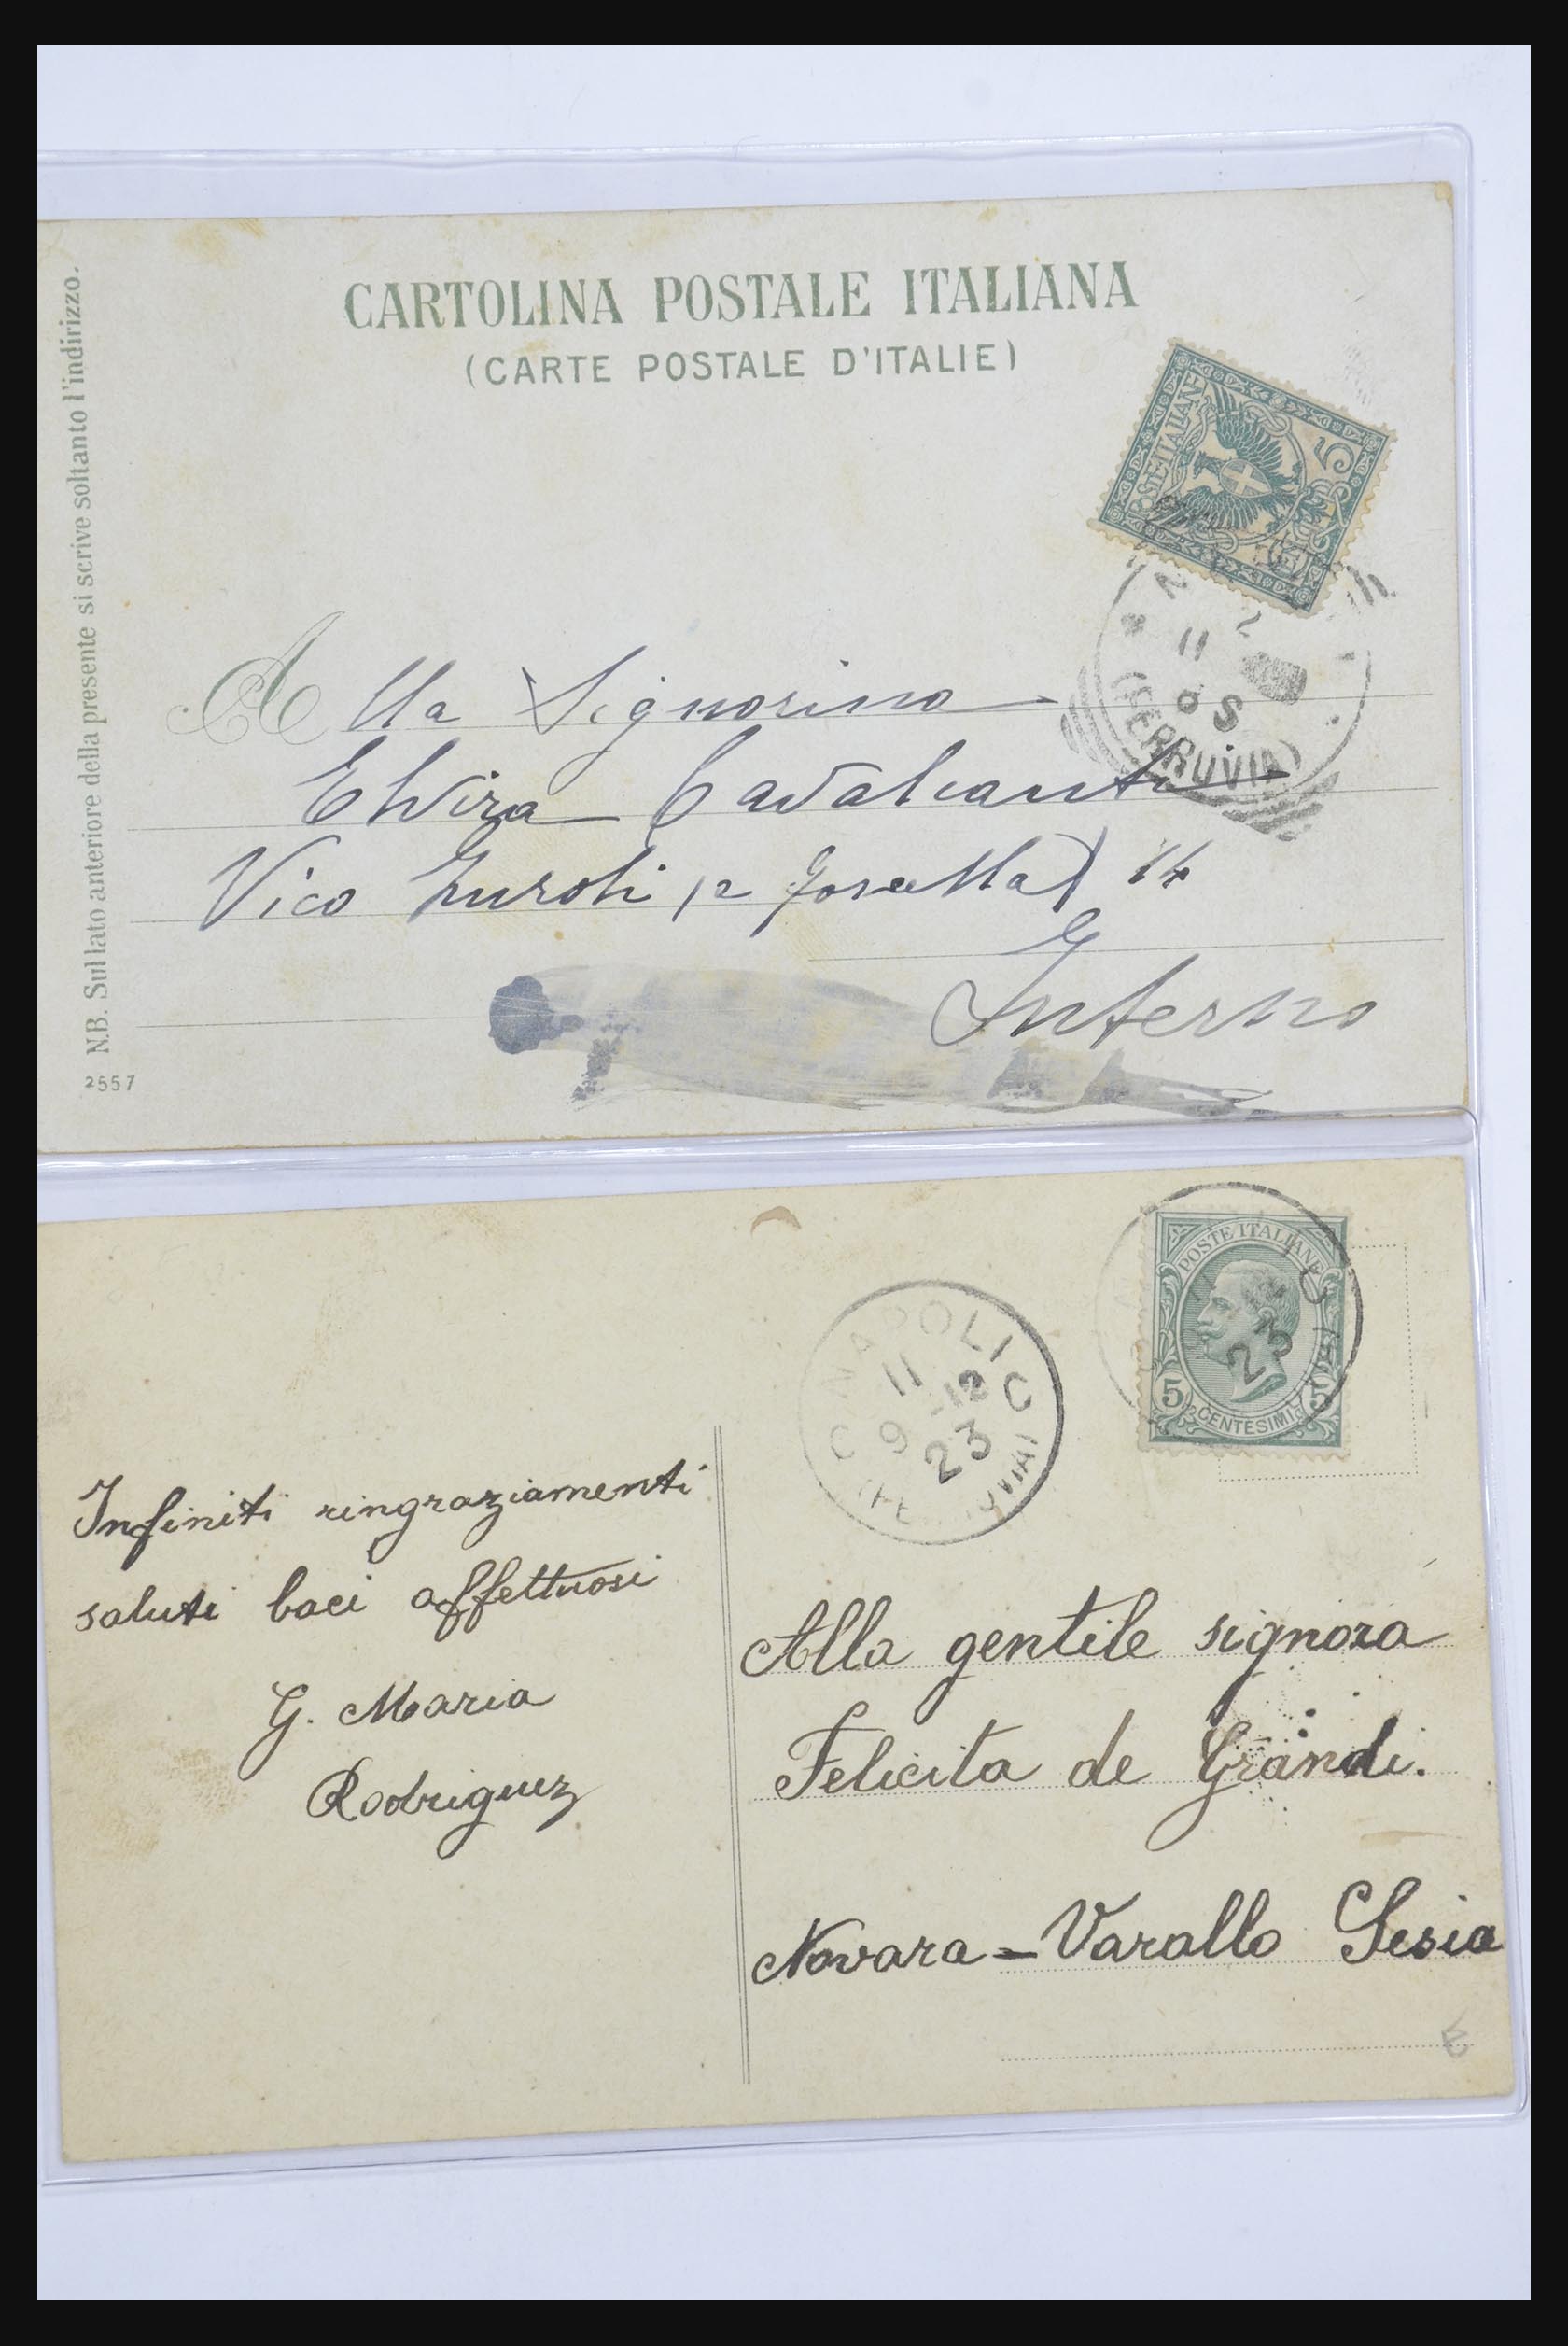 CARTOLINA POSTALE ITALIANA
(CARTE POSTALE D'ITALIE)
N.B. Sul lato anteriore della presente si scrive soltanto l'indirizzo.
2557
POSTE ITALIANE
5
11
(FERROVIA)
Alla Signorina
Elvira Cavalcanti
Vico 14
Interno
POSTE ITALIANE
5 CENTESIMI 5
12
23
NAPOLI
11 12
9 23
Infiniti ringraziamenti
saluti baci affettuosi
G. Maria
Rodriguez
Alla gentile signora
Felicita de Grandi.
Novara - Varallo Sesia